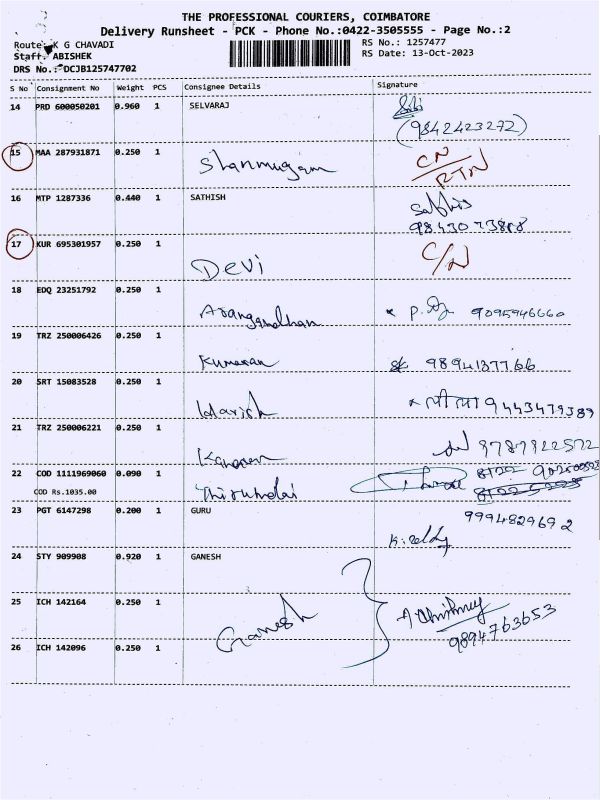 THE PROFESSIONAL COURIERS, COIMBATORE
Delivery Runsheet - PCK - Phone No.:0422-3505555 - Page No.:2
Route: K G CHAVADI
RS No.: 1257477
Staff: ABISHEK
RS Date: 13-Oct-2023
DRS No.: DCJB125747702
S No Consignment No Weight PCS Consignee Details Signature
14 PRD 600050201 0.960 1 SELVARAJ
(9842423272)
15 MAA 287931871 0.250 1 Shanmugam CN
RTN
16 MTP 1287336 0.440 1 SATHISH Sathis
17 KUR 695301957 0.250 1 Devi C/N
18 EDQ 23251792 0.250 1 9095946660
19 TRZ 250006426 0.250 1 Kumaran 9894137766
20 SRT 15083528 0.250 1 Harish 9443479389
21 TRZ 250006221 0.250 1 8787922572
22 COD 1111969060 0.090 1
COD Rs.1035.00
23 PGT 6147298 0.200 1 GURU 9994829692
K. Reddy
24 STY 909908 0.920 1 GANESH
25 ICH 142164 0.250 1 Ganesh
9894763653
26 ICH 142096 0.250 1